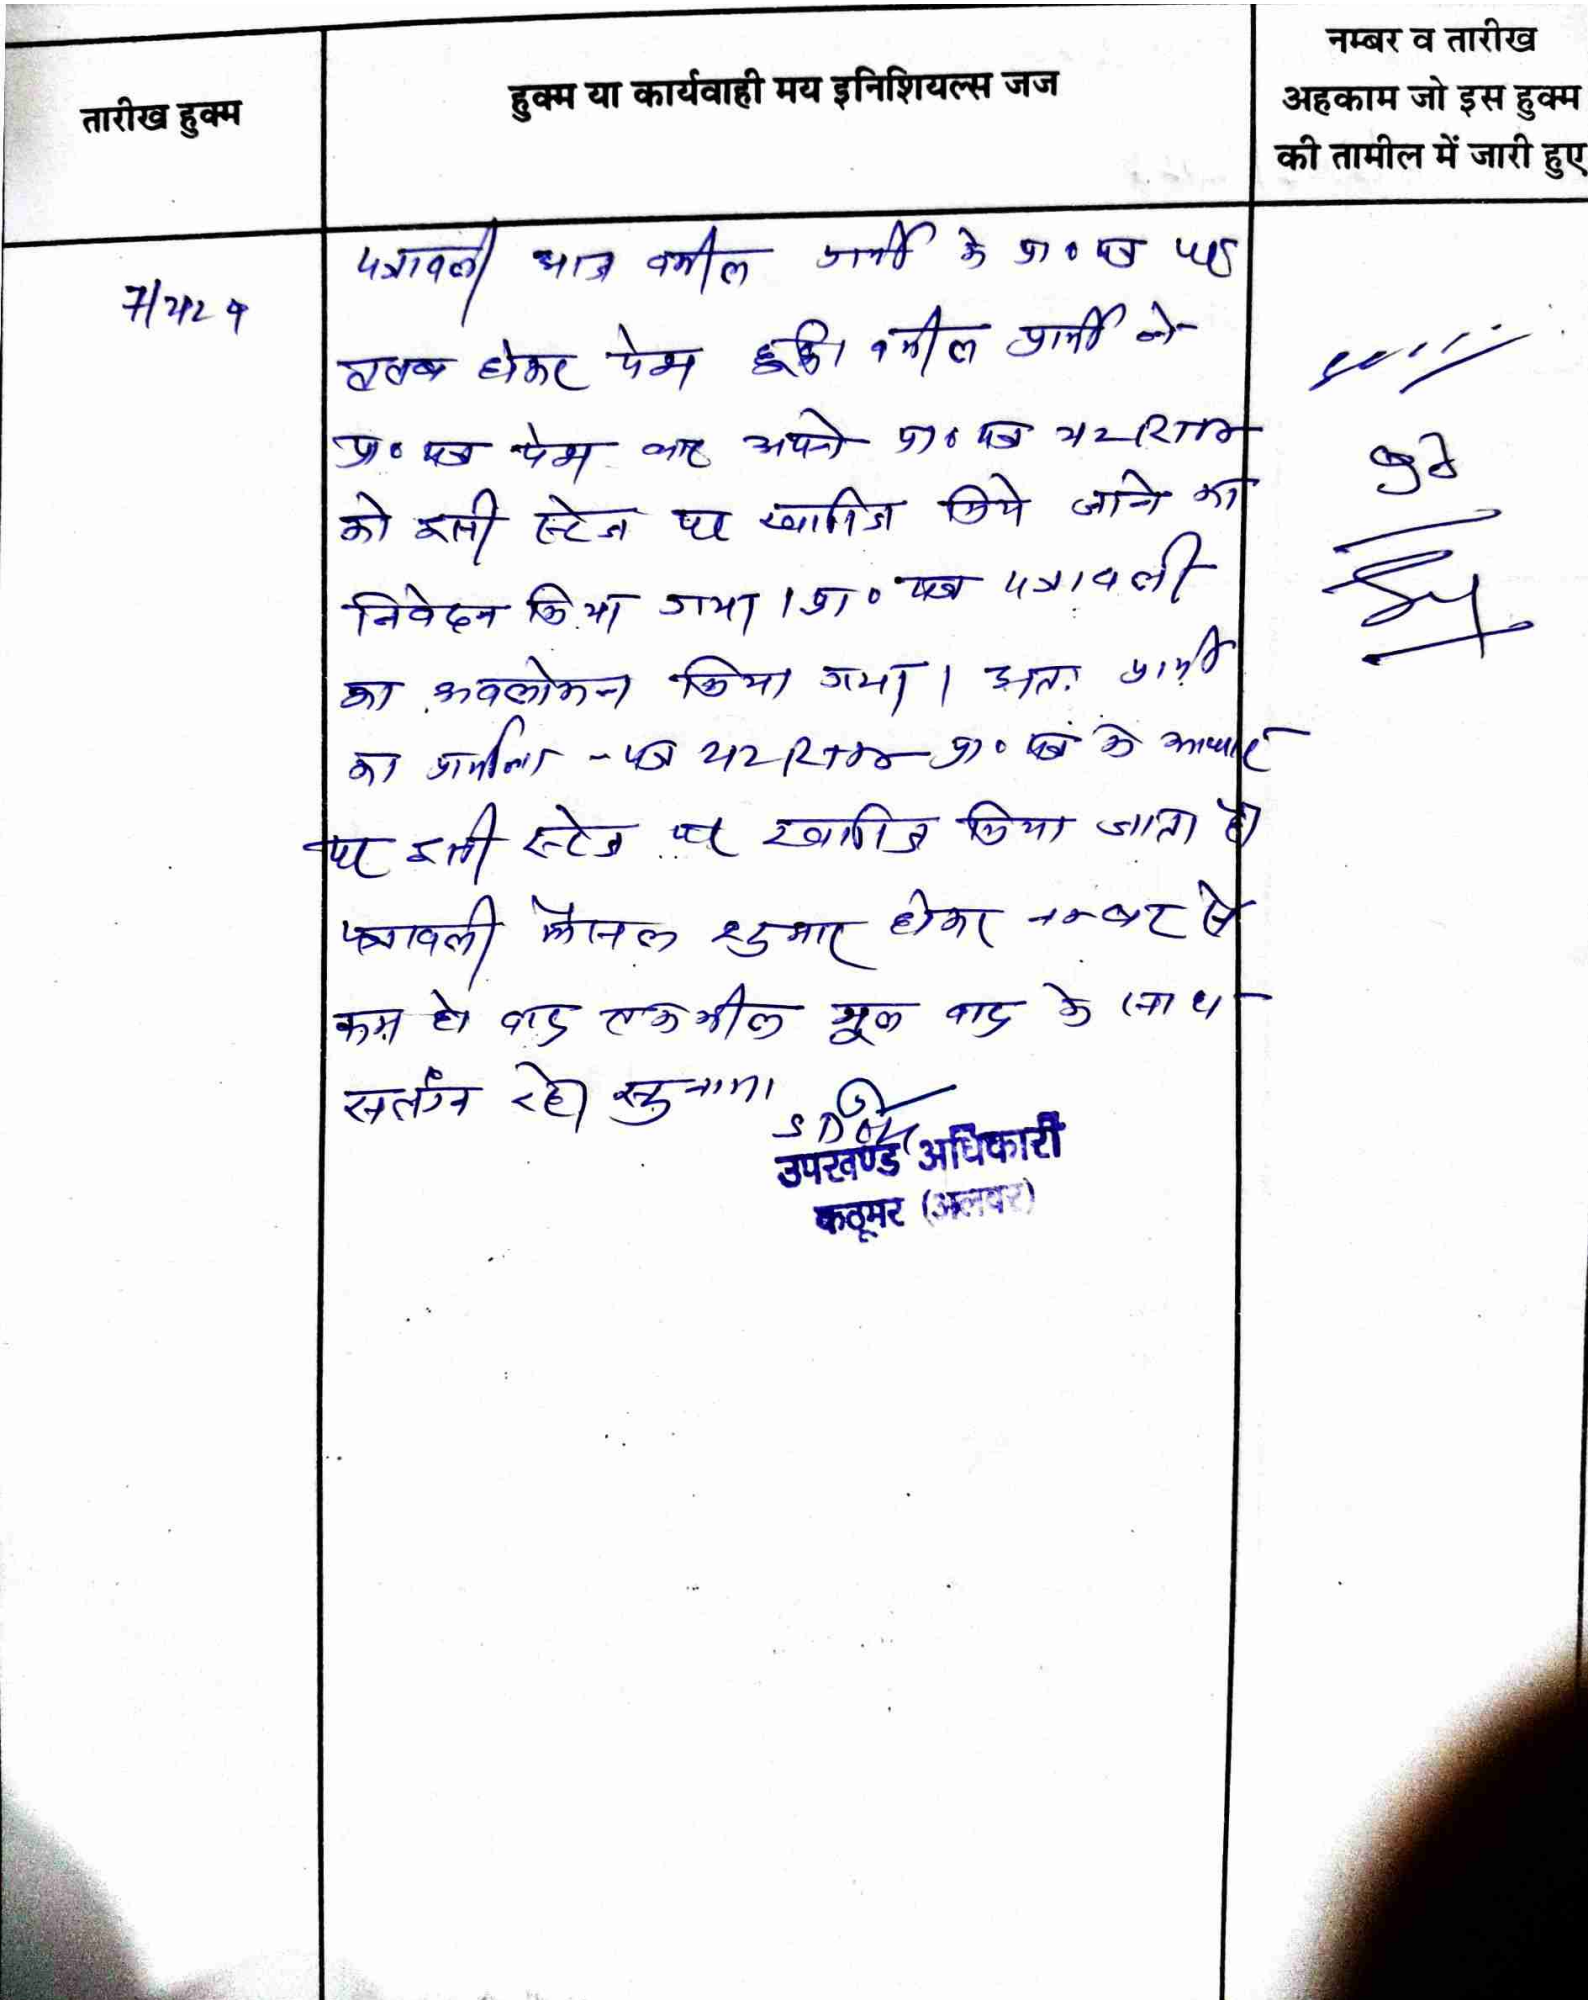 तारीख हुक्म
हुक्म या कार्यवाही मय इनिशियल्स जज
नम्बर व तारीख
अहकाम जो इस हुक्म
की तामील में जारी हुए
पत्रावली आज वकील प्रार्थी के प्रा० पत्र पर
तलब होकर पेश हुई। वकील प्रार्थी ने
प्रा० पत्र पेश कर अपने प्रा० पत्र
को इसी स्टेज पर खारिज किये जाने का
निवेदन किया गया। प्रा० पत्र पत्रावली
का अवलोकन किया गया। अतः प्रार्थी
का प्रार्थना-पत्र प्रा० पत्र के आधार
पर इसी स्टेज पर खारिज किया जाता है।
पत्रावली फैसल शुमार होकर नम्बर से
कम हो बाद तकमील मूल वाद के साथ
सलंग्न रहे।
SDO
उपखण्ड अधिकारी
कठूमर (अलवर)